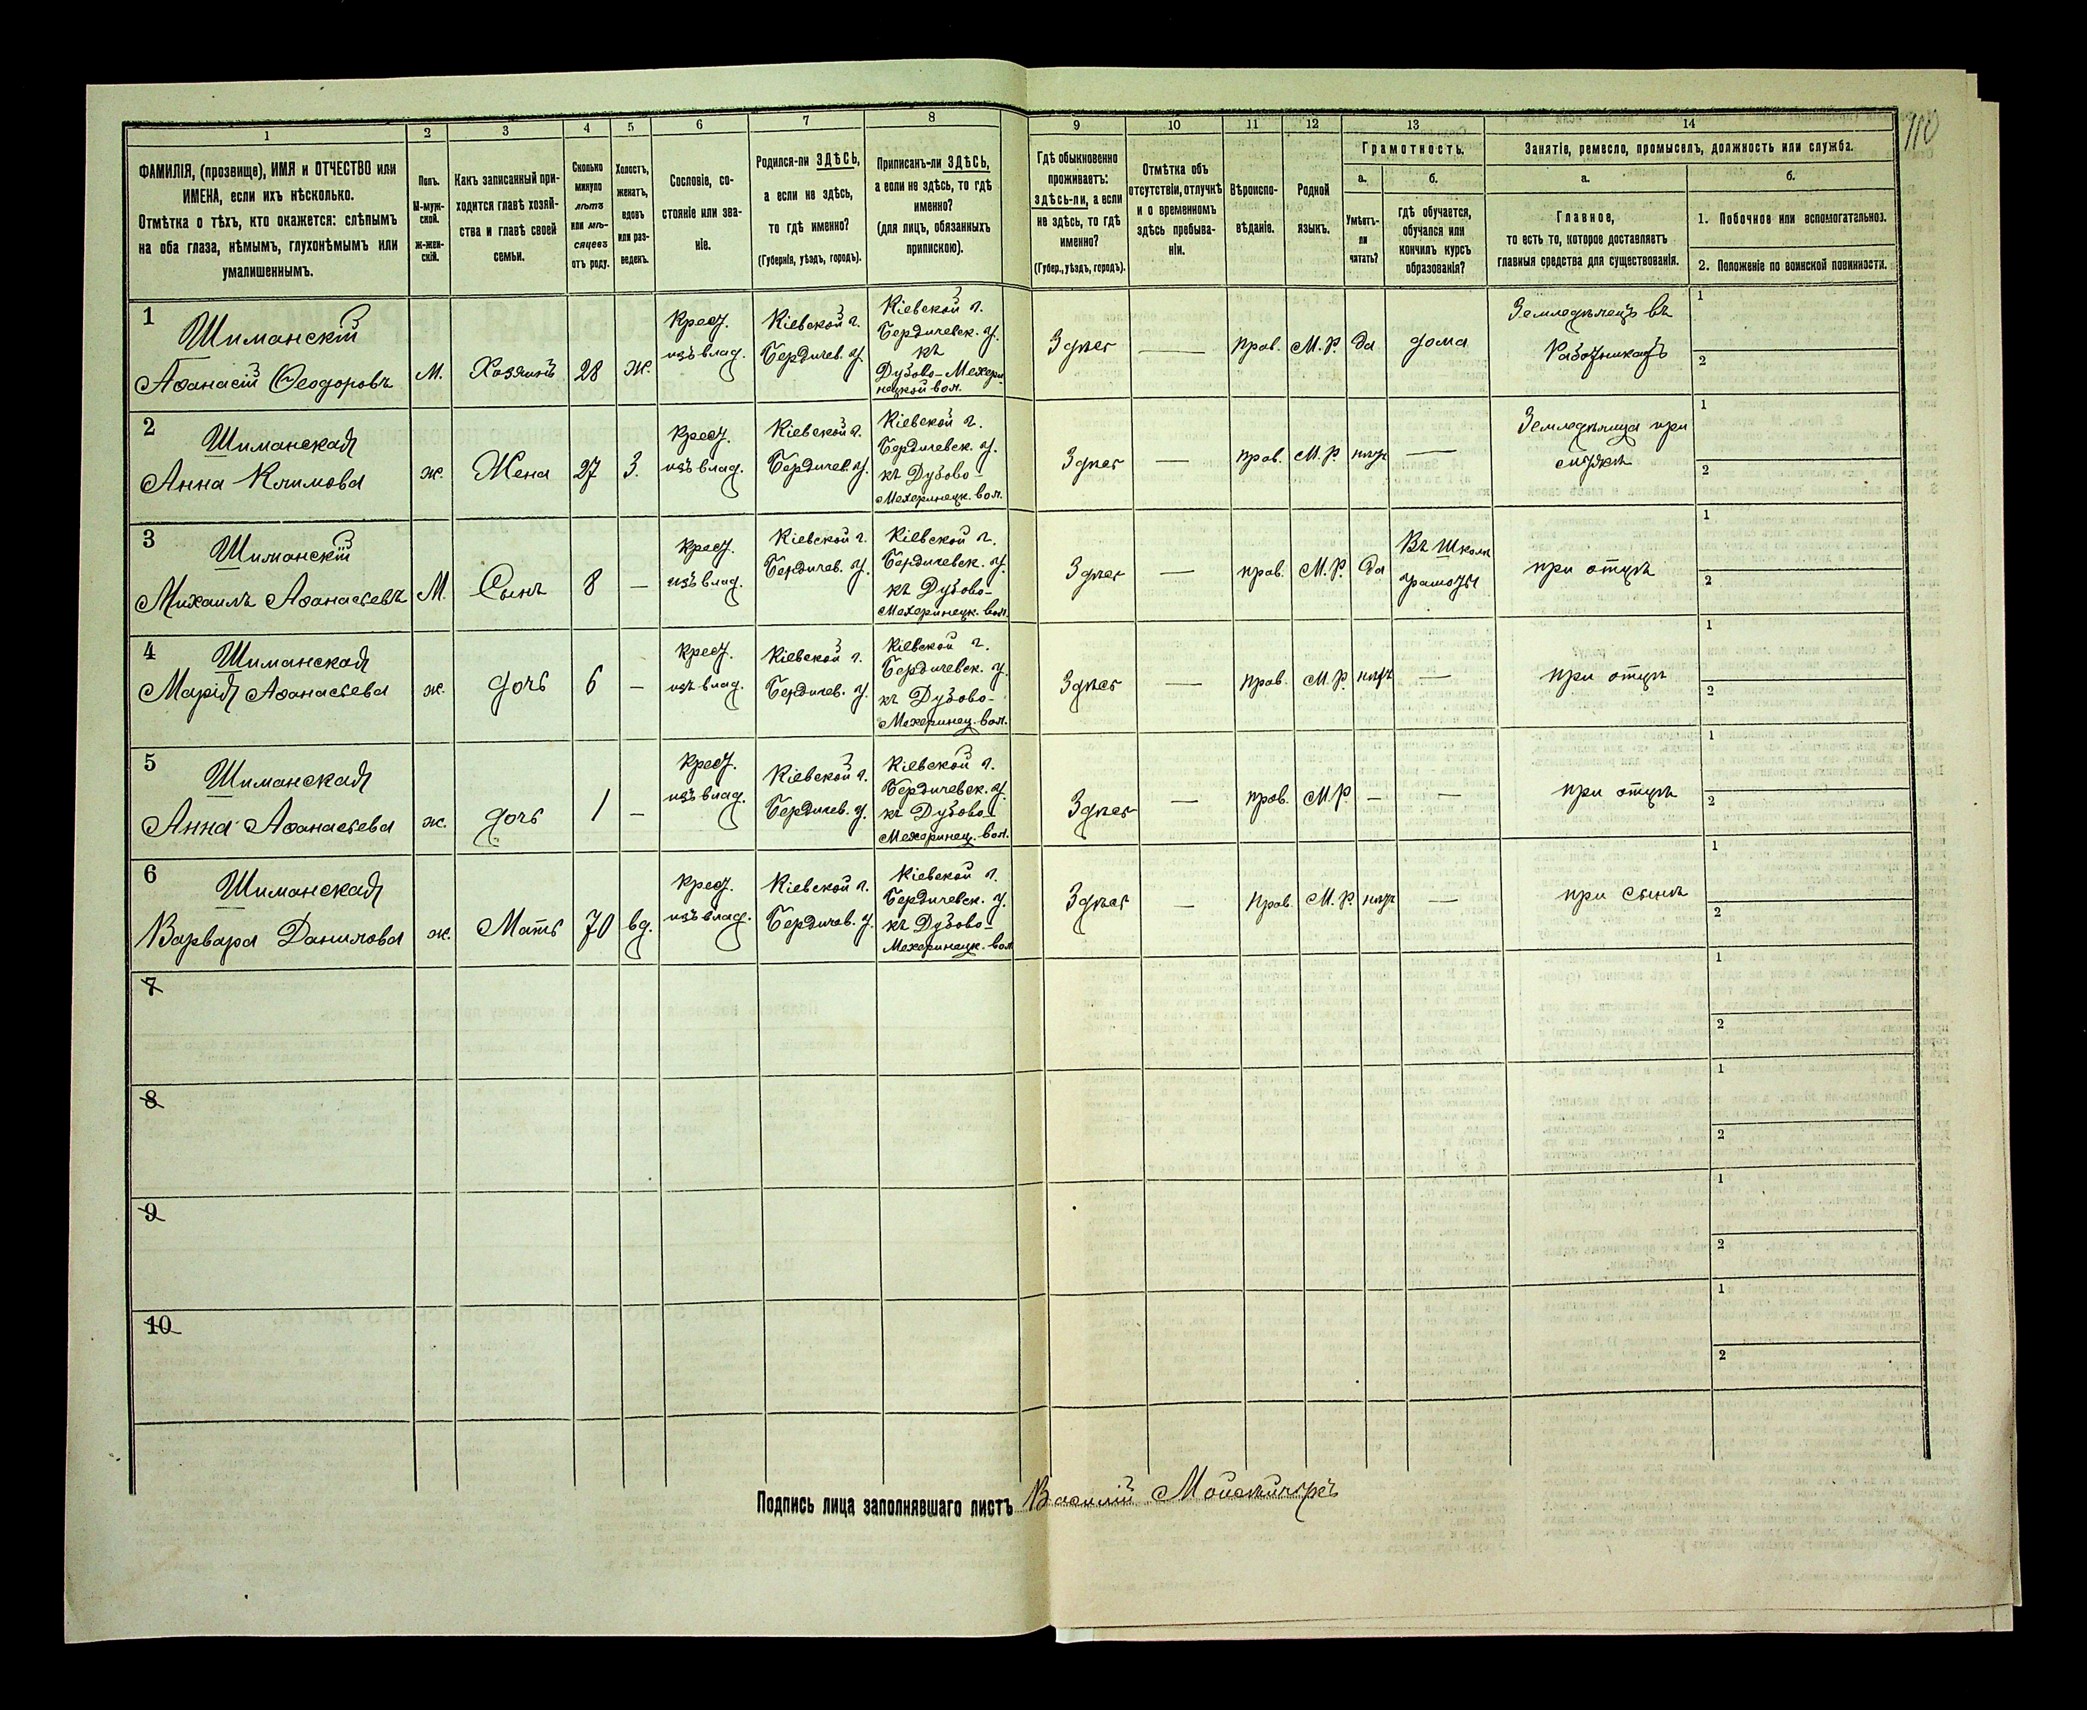 110
1 2 3 4 5 6 7 8 9 10 11 12 13 14
ФАМИЛІЯ, (прозвище), ИМЯ и ОТЧЕСТВО или
ИМЕНА, если ихъ нѣсколько.
Отмѣтка о тѣхъ, кто окажется: слѣпымъ
на оба глаза, нѣмымъ, глухонѣмымъ или
умалишеннымъ.
Полъ.
М-муж-
ской.
ж-жен-
скій.
Какъ записанный при-
ходится главѣ хозяй-
ства и главѣ своей
семьи.
Сколько
минуло
лѣтъ
или мѣ-
сяцевъ
отъ роду.
Холостъ,
женатъ,
вдовъ
или раз-
веденъ.
Сословіе, со-
стояніе или зва-
ніе.
Родился-ли ЗДѢСЬ,
а если не здѣсь,
то гдѣ именно?
(Губернія, уѣздъ, городъ).
Приписанъ-ли ЗДѢСЬ,
а если не здѣсь, то гдѣ
именно?
(для лицъ, обязанныхъ
припискою).
Гдѣ обыкновенно
проживаетъ:
ЗДѢСЬ-ли, а если
не здѣсь, то гдѣ
именно?
(Губер., уѣздъ, городъ).
Отмѣтка объ
отсутствіи, отлучкѣ
и о временномъ
здѣсь пребыва-
ніи.
Вѣроиспо-
вѣданіе.
Родной
языкъ.
Грамотность.
а.
Умѣетъ-
ли
читать?
б.
гдѣ обучается,
обучался или
кончилъ курсъ
образованія?
Занятіе, ремесло, промыселъ, должность или служба.
а.
Главное,
то есть то, которое доставляетъ
главныя средства для существованія.
б.
1. Побочное или вспомогательное.
2. Положеніе по воинской повинности.
1
Шиманскій
Аѳанасій Ѳеодоровъ
М.
Хозяинъ
28
ж.
Крест.
изъ влад.
Кіевской г.
Бердичев. у.
Кіевской г.
Бердичевск. у.
къ
Дубово-Мехери-
нецкой вол.
Здѣсь
—
прав.
М.Р.
да
дома
Земледѣлецъ въ
Работникахъ
1
2
2
Шиманская
Анна Климова
ж.
Жена
27
З.
Крест.
изъ влад.
Кіевской г.
Бердичев. у.
Кіевской г.
Бердичевск. у.
къ Дубово-
Мехеринецк. вол.
Здѣсь
—
прав.
М.Р.
нѣтъ
—
Земледѣлица при
мужѣ
1
2
3
Шиманскій
Михаилъ Аѳанасьевъ
М.
Сынъ
8
—
Крест.
изъ влад.
Кіевской г.
Бердичев. у.
Кіевской г.
Бердичевск. у.
къ Дубово-
Мехеринецк. вол.
Здѣсь
—
прав.
М.Р.
да
Въ Школѣ
грамоты
при отцѣ
1
2
4
Шиманская
Марія Аѳанасьева
ж.
дочь
6
—
Крест.
изъ влад.
Кіевской г.
Бердичев. у.
Кіевской г.
Бердичевск. у.
къ Дубово-
Мехеринец. вол.
Здѣсь
—
прав.
М.Р.
нѣтъ
—
при отцѣ
1
2
5
Шиманская
Анна Аѳанасьева
ж.
дочь
1
—
Крест.
изъ влад.
Кіевской г.
Бердичев. у.
Кіевской г.
Бердичевск. у.
къ Дубово-
Мехеринец. вол.
Здѣсь
—
прав.
М.Р.
—
—
при отцѣ
1
2
6
Шиманская
Варвара Данилова
ж.
Мать
70
вд.
Крест.
изъ влад.
Кіевской г.
Бердичев. у.
Кіевской г.
Бердичевск. у.
къ Дубово-
Мехеринецк. вол.
Здѣсь
—
прав.
М.Р.
нѣтъ
—
при сынѣ
1
2
7
1
2
8
1
2
9
1
2
10
1
2
Подпись лица заполнявшаго листъ Василій